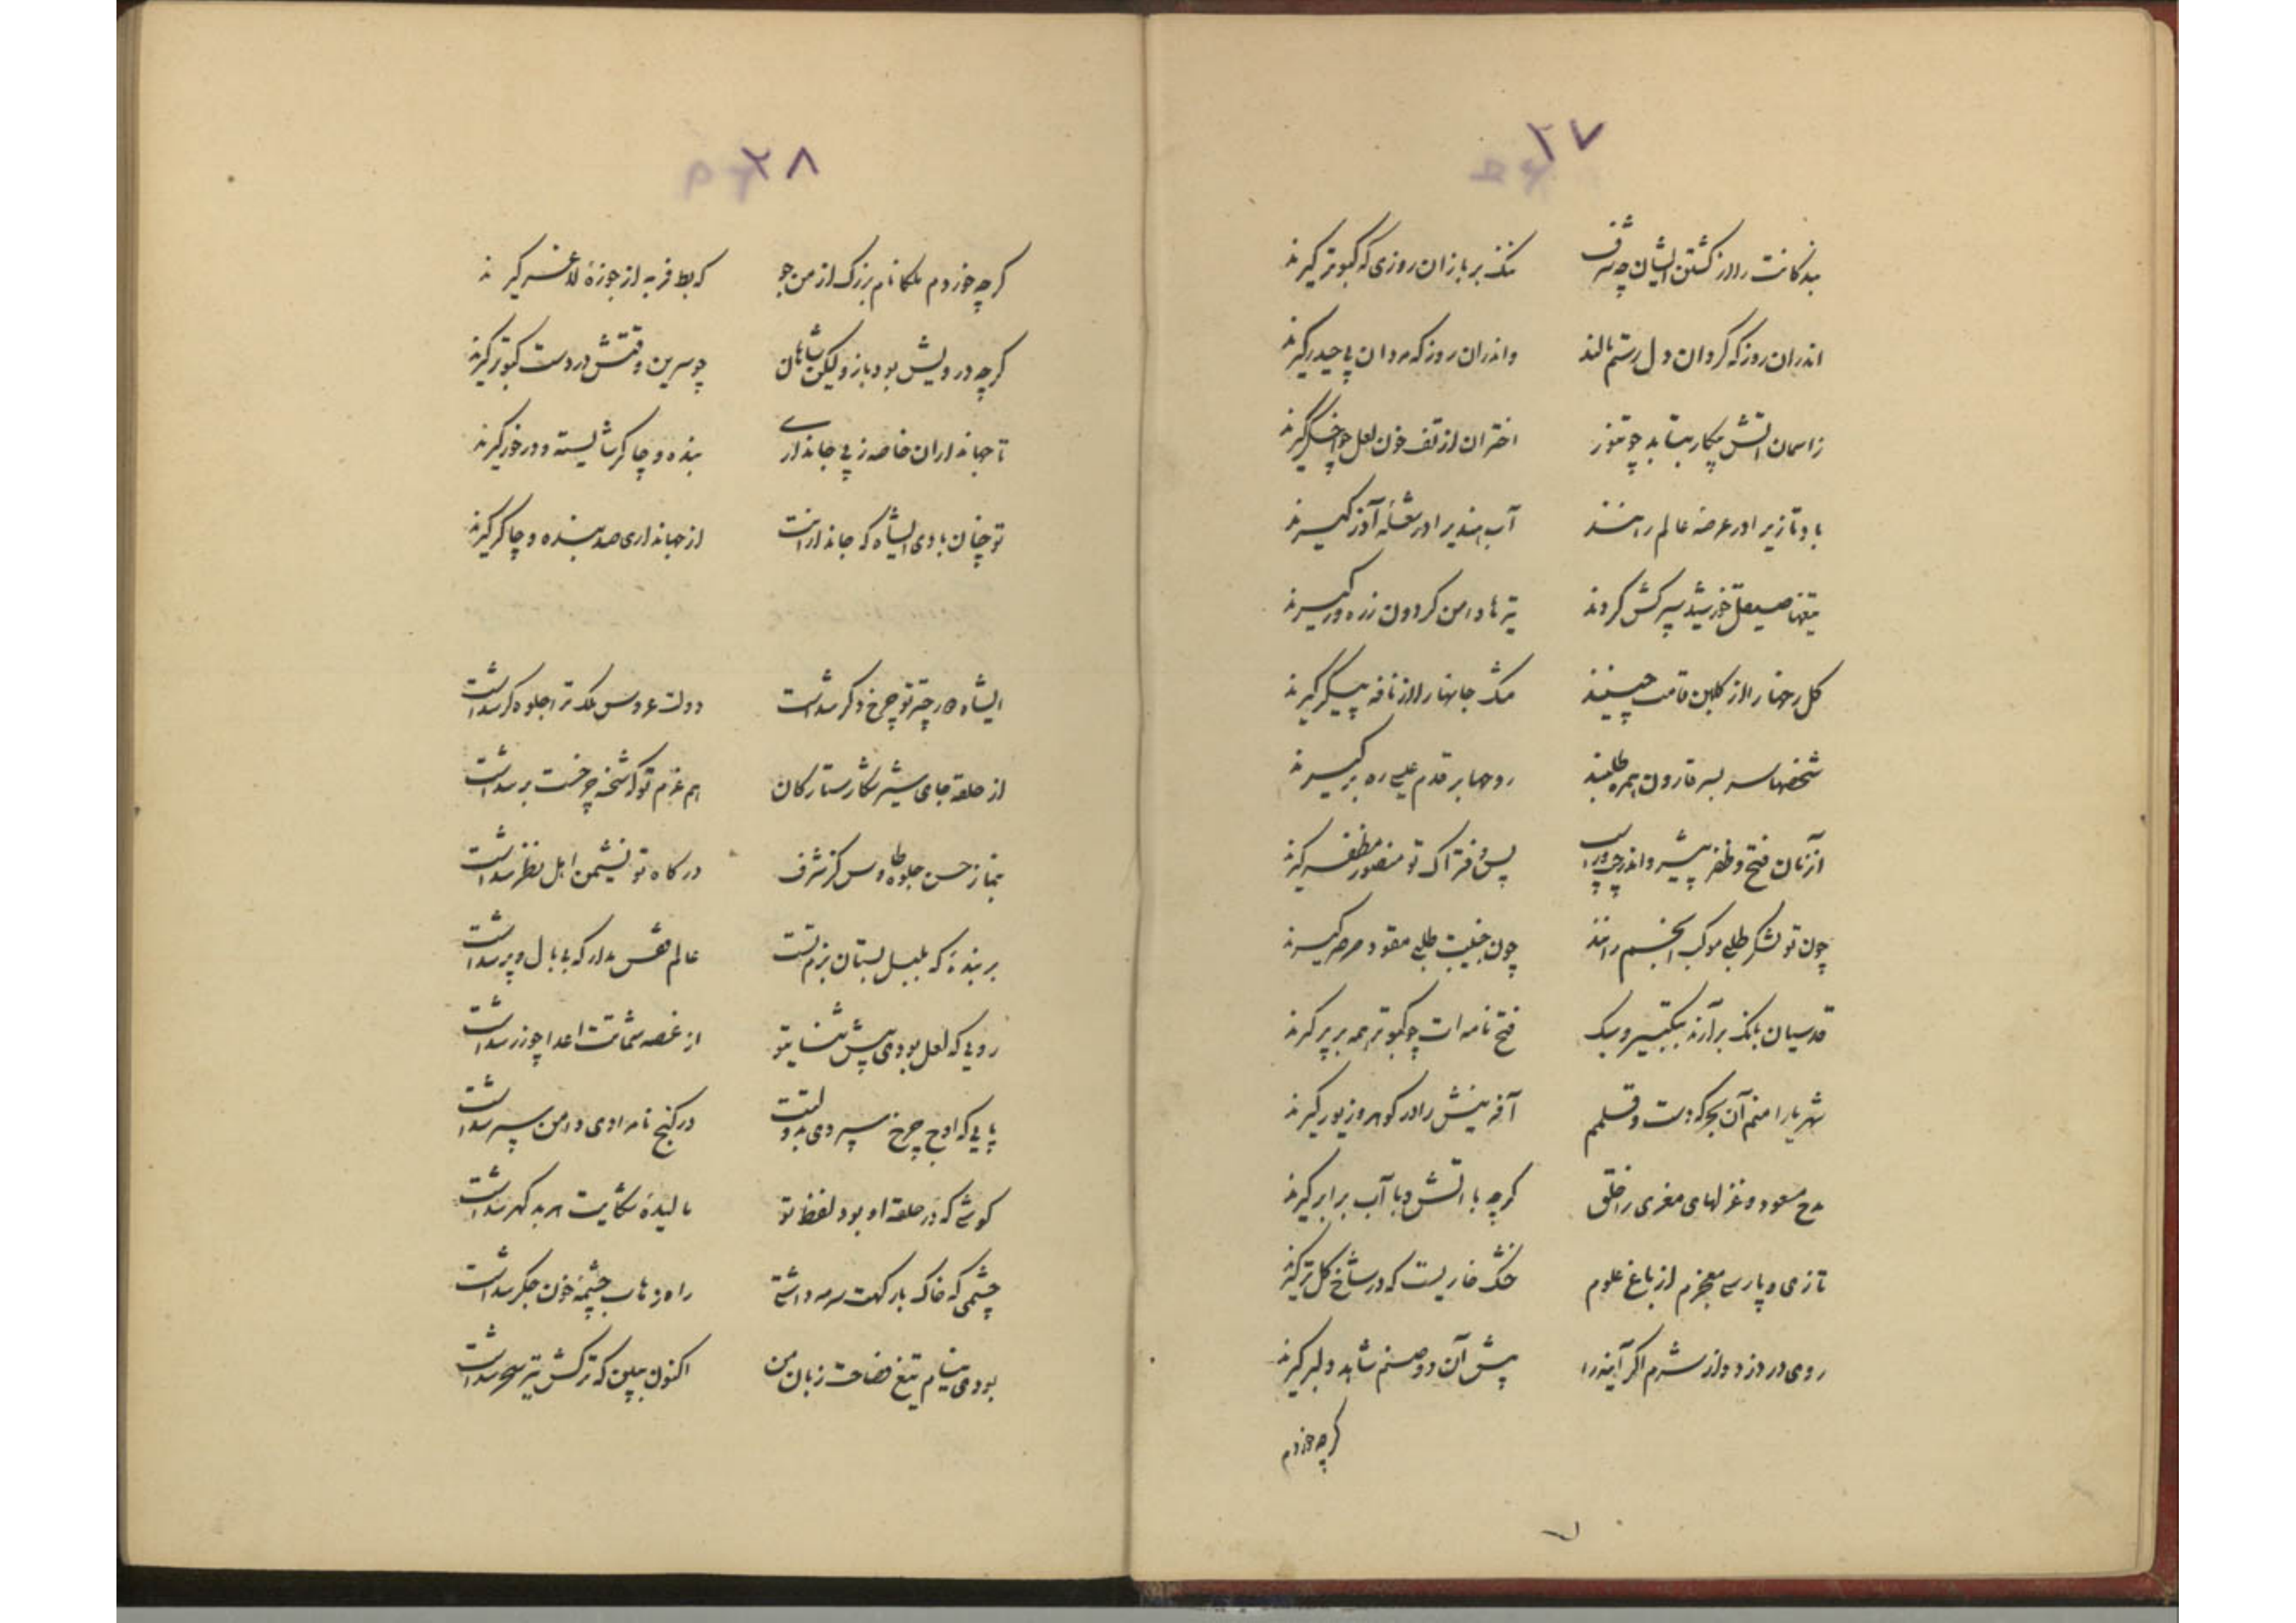 ۲۷
بندگانت را از کشتن ایشان چه شرف ننگ بر بازان روزی که کبوتر گیرند
اندران روز که گردان دل رستم مالند واندران روز که مردان پی حیدر گیرند
زاسمان اتش پیکار بتابد چو تنور اختران از تف خون لعل چو اخگر گیرند
باد تازی را در عرصه عالم رانند آب هندی را در شعله آذر گیرند
تیغها صیقل خورشید سپر کش گردند تیرها دامن گردون زره ور گیرند
گل رخها را از گلبن قامت چینند مشک جانها را از نافه پیکر گیرند
شخصها سر بسر قارون همره طلبند روحها بر قدم عیسی ره بر گیرند
از زمان فتح و ظفر پیش و اندر چپ و راست پس فتراک تو منصور مظفر گیرند
چون تو لشکر طلبی موکب انجم رانند چون جنیبت طلبی مقود صرصر گیرند
قدسیان بانک برآرند بتکبیر و سبک فتح نامه ات چو کبوتر همه بر پر گیرند
شهریارا منم آن بحر که دست و قلمم آفرینش را در گوهر و زیور گیرند
مدح مسعود و غزلهای معزی را خلق گرچه با اتش و با آب برابر گیرند
تازی و پارسی معجزم از باغ علوم خشک خاریست که در شاخ گل تر گیرند
روی در دزدد از شرم اگر آینه را پیش آن دو صنم شاهد و لبر گیرند
گرچه خردم
۲۸
گرچه خردم ملکا نام بزرگ از من جو که بط فربه از جوزهٔ لاغر گیرند
گرچه درویش بود باز ولیکن شاهان چو سرین وقتش در دست کبوتر گیرند
تا جهانداران خاصه ز پی جانداری بنده و چاکر شایسته و در خور گیرند
تو چنان بادی ای شاه که جاندارانت از جهانداری صد بنده و چاکر گیرند
ای شاه در چتر تو چرخ دگر شدست دولت عروس ملک ترا جلوه گر شدست
از حلقه جای شیر شکار ستارگان هم عزم تو که شحنه چرخست بر شدست
بنماز حسن جلوه طاوس کز شرف درگاه تو نشیمن اهل نظر شدست
بر بندهٔ که بلبل بستان بزم تست عالم قفس مدار که بی بال و پر شدست
رویی که لعل بودی پیش ثنای تو از غصه شماتت اعدا چو زر شدست
پایی که اوج چرخ سپردی بدولتت در کنج نامرادی دامن سپر شدست
گوشی که در حلقه او بود لفظ تو مالیدهٔ شکایت هر بد گهر شدست
چشمی که خاک بارگهت سرمه داشتی راه زهاب چشمهٔ خون جگر شدست
بودی نیام تیغ فصاحت زبان من اکنون ببین که ترکش تیر سحر شدست